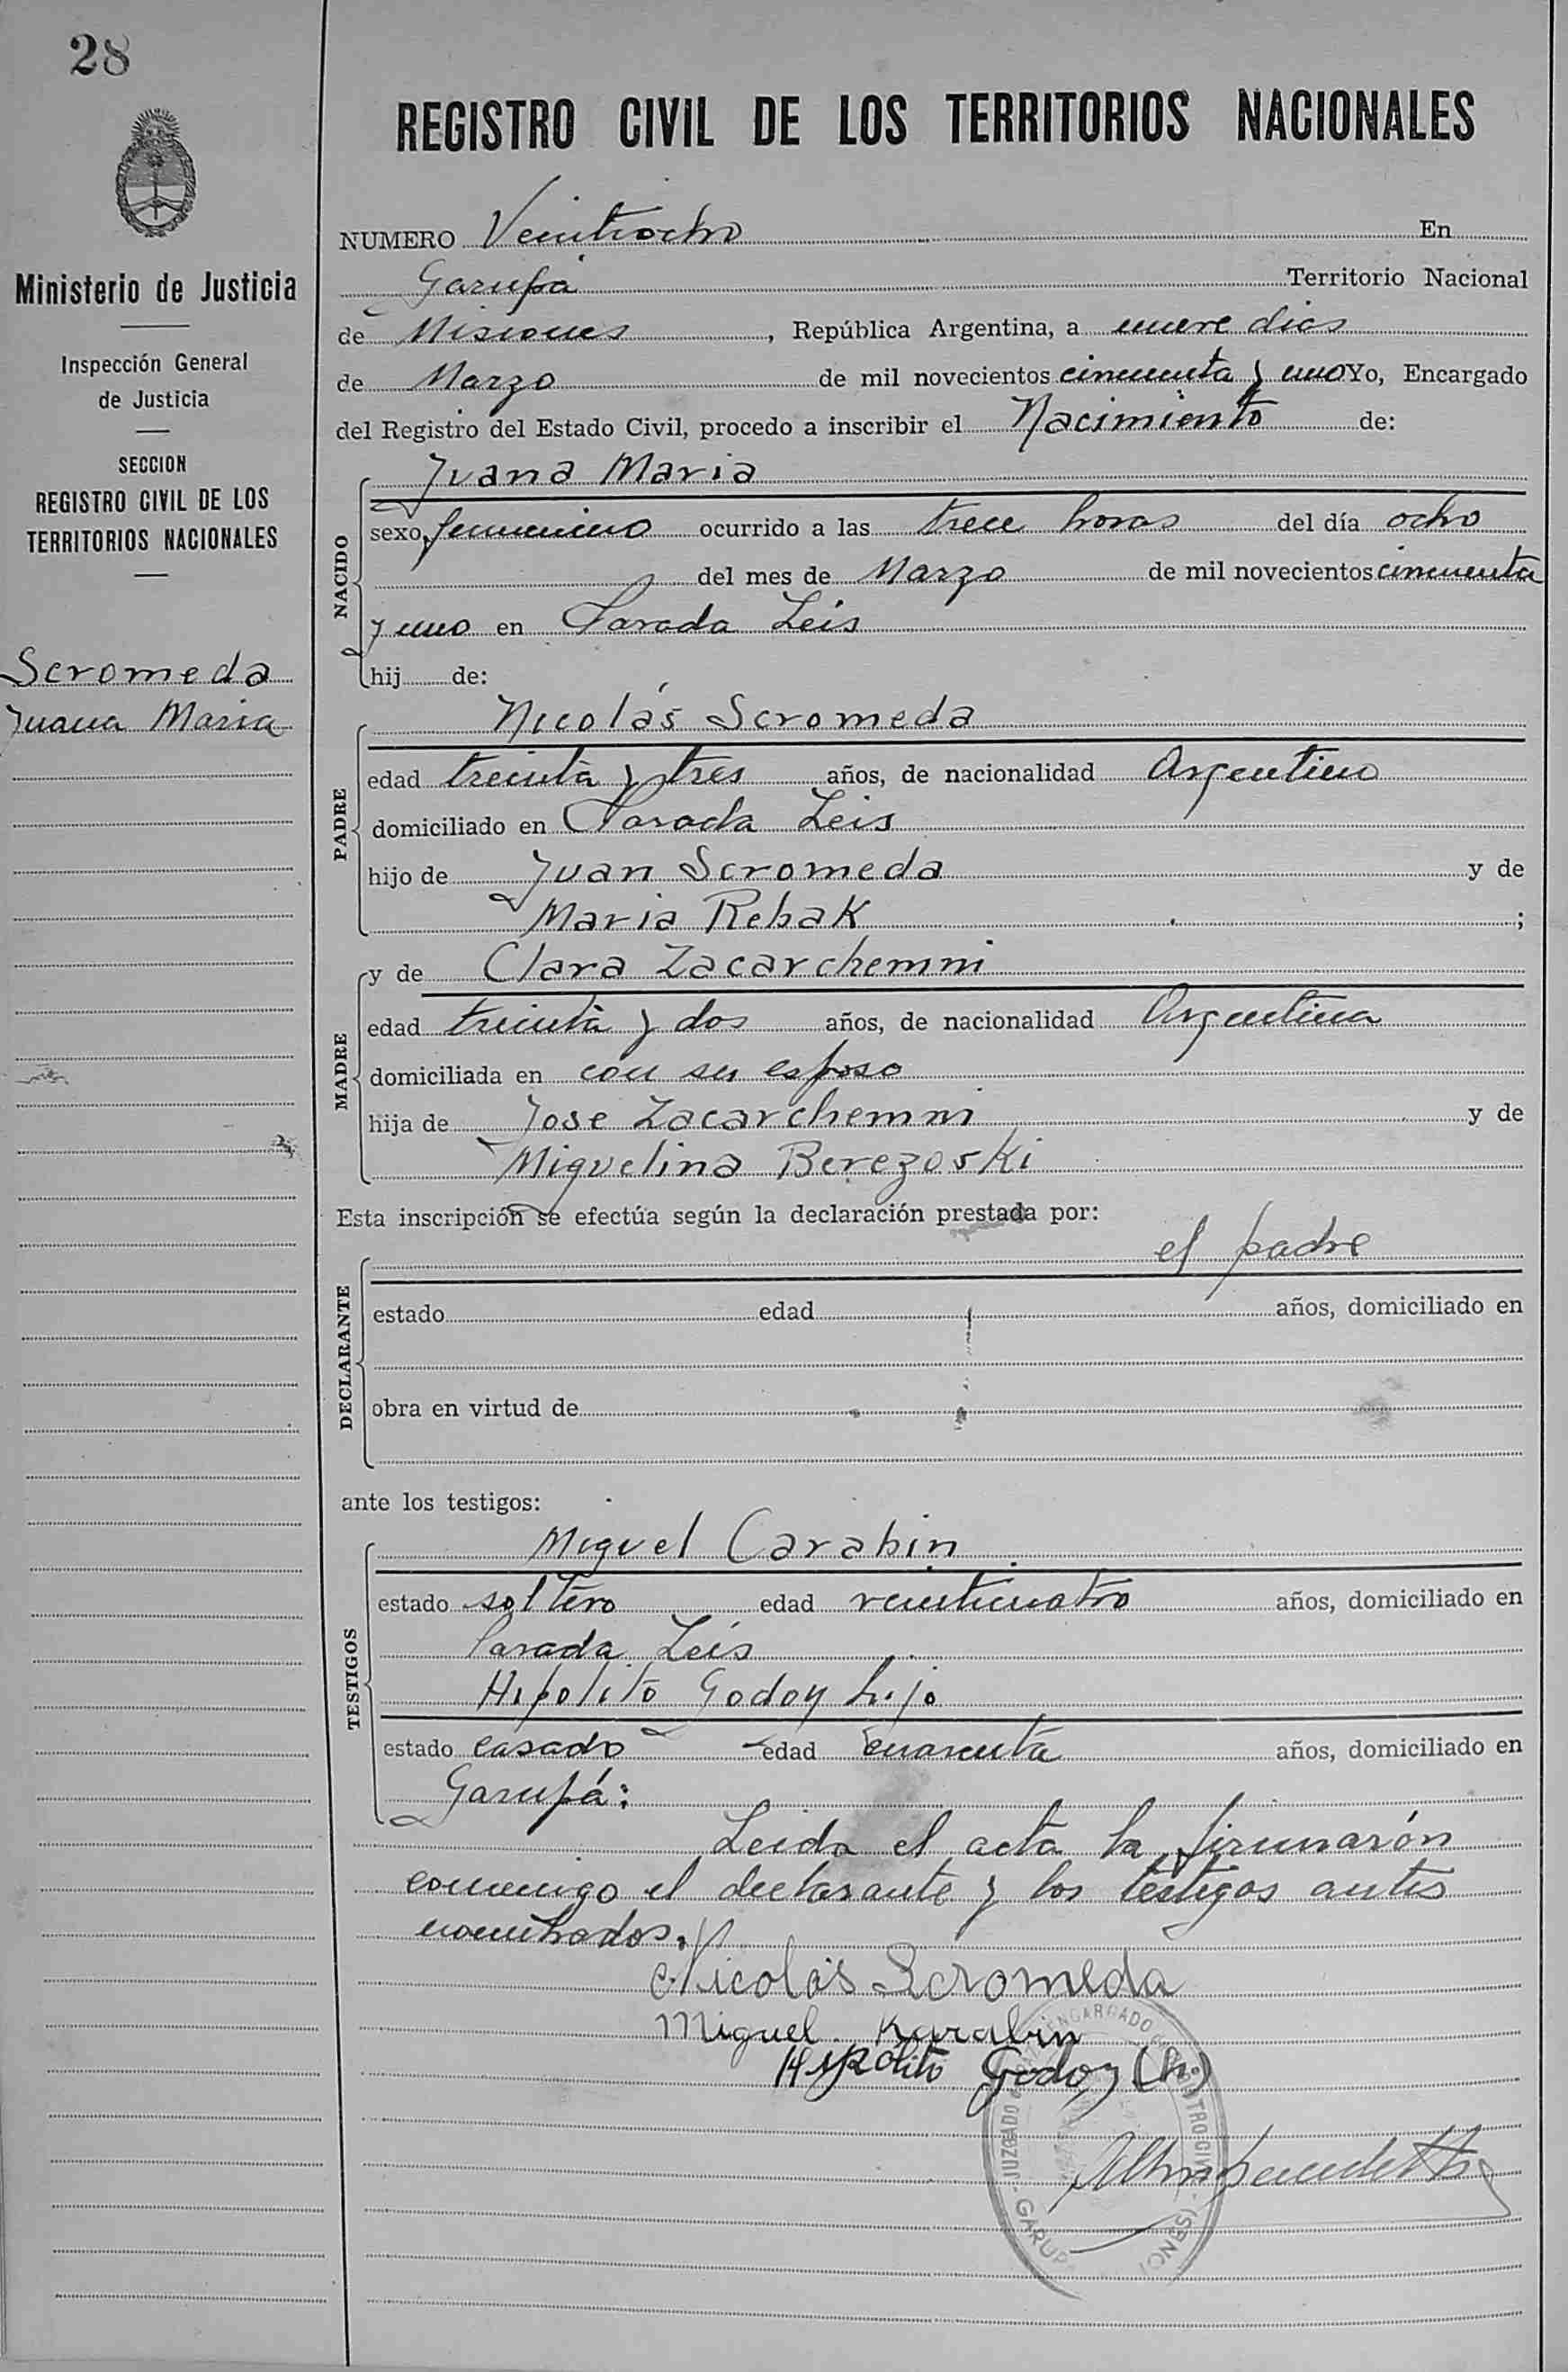 28
REGISTRO CIVIL DE LOS TERRITORIOS NACIONALES
Ministerio de Justicia
Inspección General
de Justicia
SECCION
REGISTRO CIVIL DE LOS
TERRITORIOS NACIONALES
Scromeda
Juana Maria
NUMERO Veintiocho En
Garupá Territorio Nacional
de Misiones, República Argentina, a nueve dias
de Marzo de mil novecientos cincuenta y uno Yo, Encargado
del Registro del Estado Civil, procedo a inscribir el Nacimiento de:
NACIDO
Juana Maria
sexo femenino ocurrido a las trece horas del día ocho
del mes de Marzo de mil novecientos cincuenta
y uno en Parada Leis
hij de:
PADRE
Nicolás Scromeda
edad treinta y tres años, de nacionalidad Argentino
domiciliado en Parada Leis
hijo de Juan Scromeda y de
Maria Rebak ;
MADRE
y de Clara Zacarchemni
edad treinta y dos años, de nacionalidad Argentina
domiciliada en con su esposo
hija de Jose Zacarchemni y de
Miguelina Berezoski
Esta inscripción se efectúa según la declaración prestada por:
DECLARANTE
el padre
estado edad años, domiciliado en
obra en virtud de
ante los testigos:
TESTIGOS
Miguel Carabin
estado soltero edad veinticuatro años, domiciliado en
Parada Leis
Hipolito Godoy hijo
estado casado edad cuarenta años, domiciliado en
Garupá:
Leida el acta la firmarón
conmigo el declarante y los testigos antes
nombrados.
Nicolás Scromeda
Miguel Karabin
Hipolito Godoy (h)
JUZGADO ENCARGADO REGISTRO CIVIL
GARUPA